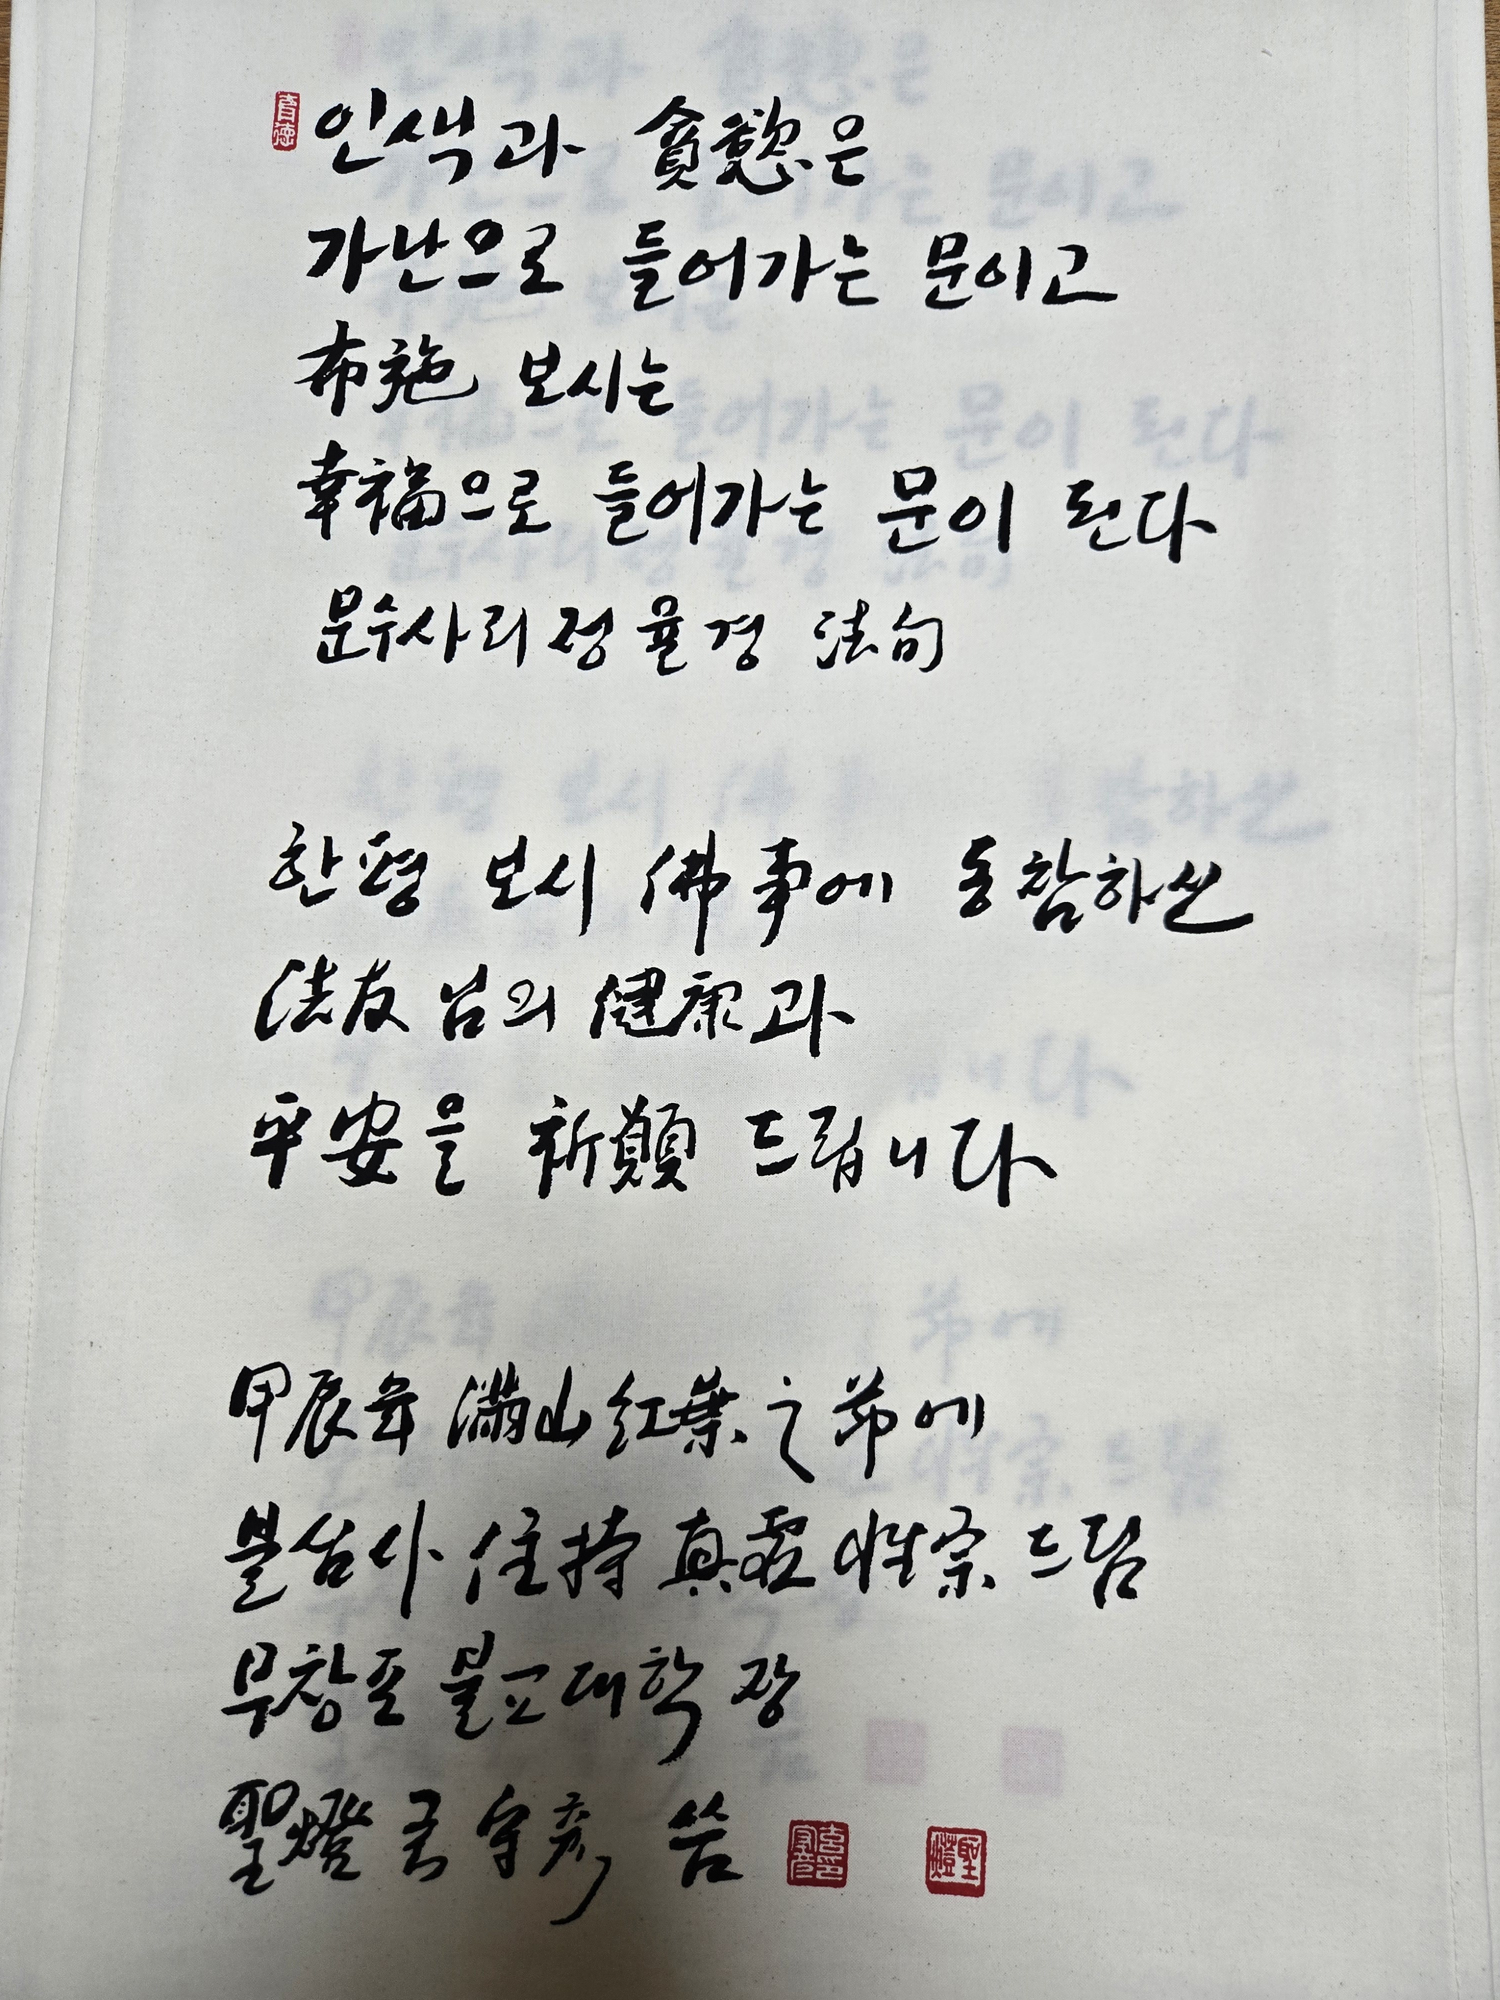 인색과 貪慾은
가난으로 들어가는 문이고
布施 보시는
幸福으로 들어가는 문이 된다
문수사리정율경 法句
한평 보시 佛事에 동참하신
法友님의 健康과
平安을 祈願 드립니다
甲辰年 滿山紅葉之節에
불심사 住持 真虛 性宗 드림
무창포 불교대학장
聖燈 守彦 씀
聖燈